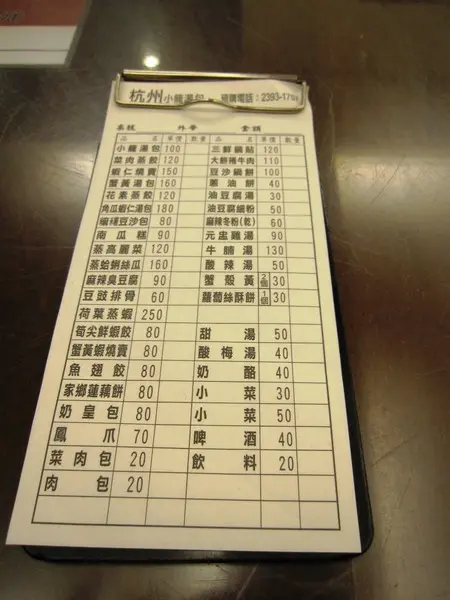 杭州小籠湯包 預購電話：2393-17
桌號 外帶 金額
品名 單價 數量 品名 單價 數量
小籠湯包 100 三鮮鍋貼 120
菜肉蒸餃 120 大餅捲牛肉 110
蝦仁燒賣 150 豆沙鍋餅 100
蟹黃湯包 160 蔥油餅 40
花素蒸餃 120 油豆腐湯 30
絲瓜蝦仁湯包 180 油豆腐細粉 50
豆沙包 80 麻辣冬粉(乾) 60
南瓜糕 90 元盅雞湯 90
蒸高麗菜 120 牛腩湯 130
蒸蛤蜊絲瓜 160 酸辣湯 50
麻辣臭豆腐 90 蟹殼黃 2個 30
豆豉排骨 60 蘿蔔絲酥餅 1個 30
荷葉蒸蝦 250
筍尖鮮蝦餃 80 甜湯 50
蟹黃蝦燒賣 80 酸梅湯 40
魚翅餃 80 奶酪 40
家鄉蓮藕餅 80 小菜 30
奶皇包 80 小菜 50
鳳爪 70 啤酒 40
菜肉包 20 飲料 20
肉包 20